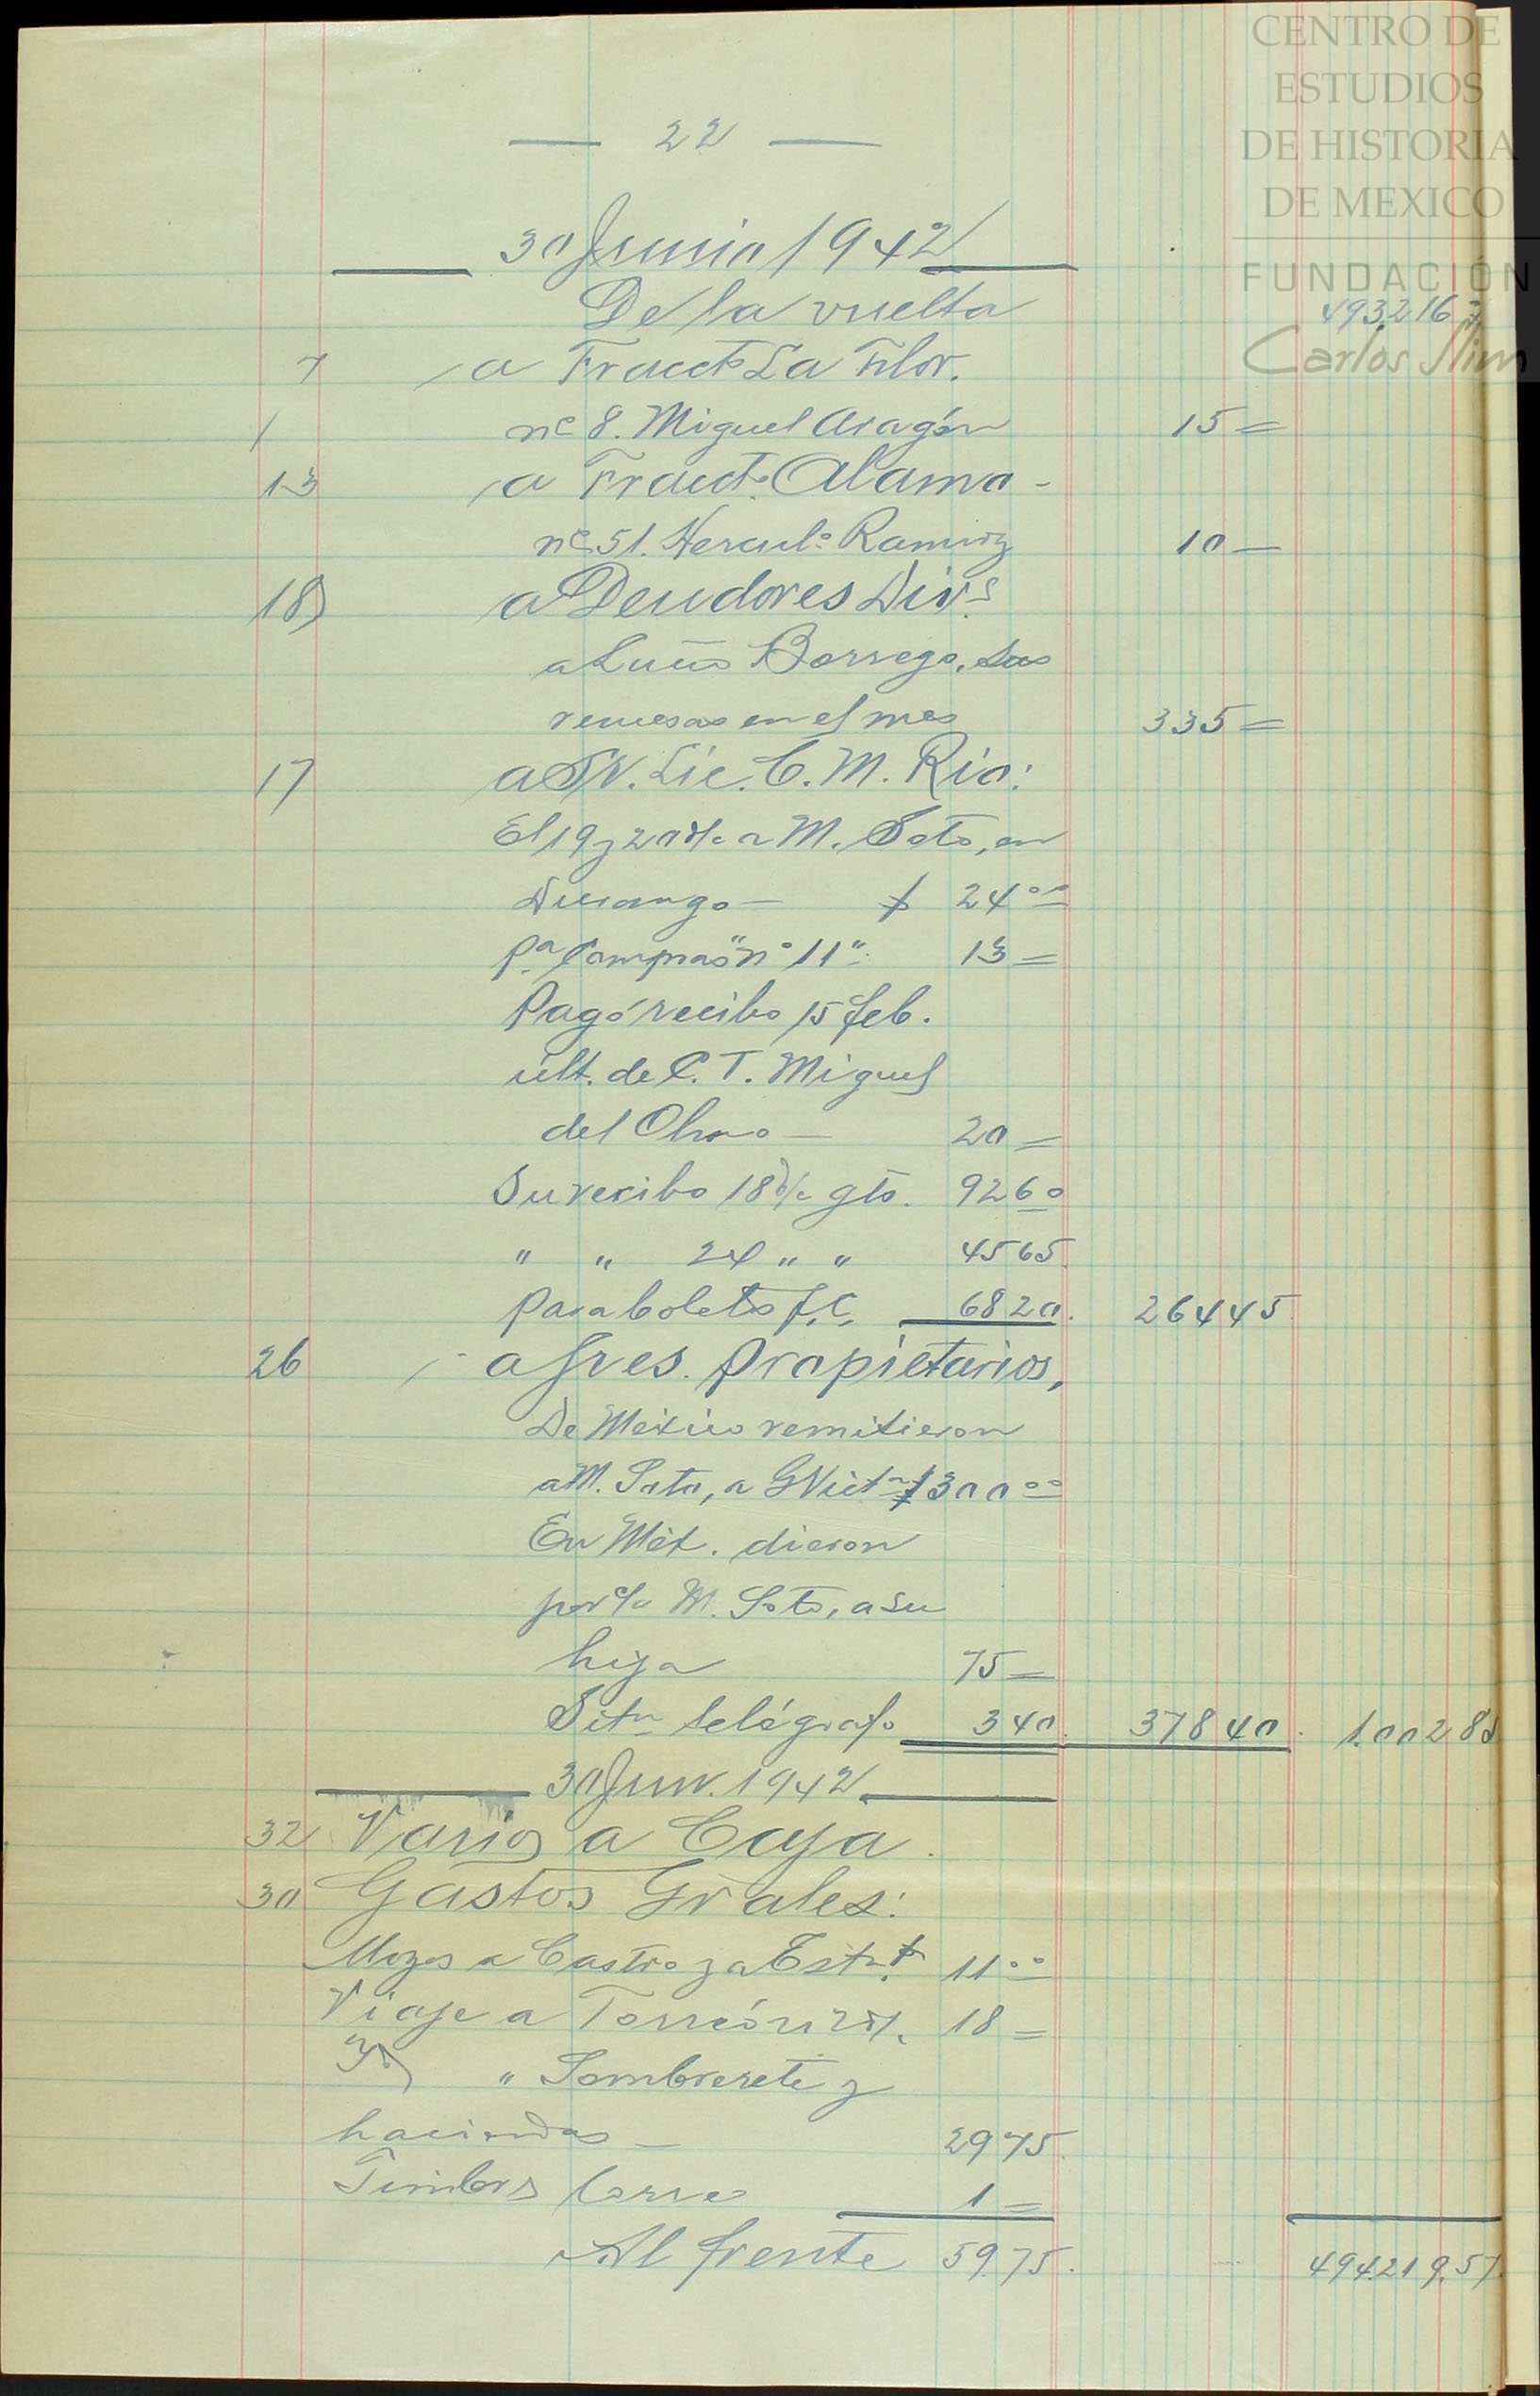 CENTRO DE
ESTUDIOS
DE HISTORIA
DE MEXICO
FUNDACIÓN
Carlos Slim
— 22 —
30 Junio 1942
De la vuelta 493.216
7 a Fracto La Flor.
1 nº 8. Miguel Aragón 15 =
13 a Fracto. Alamo -
nº 51. Herculº Ramirz 10 —
18 a Deudores Divs.
a Borrego, sus
remesas en el mes 335 =
17 a Sr. Lic. C. M. Rio:
El 19 y 20 d/c a M. Soto, en
Durango — $ 24 00
Pª Compras "nº 11" 13 =
Pagó recibo 15 feb.
últ. de C. T. Miguel
del Olmo — 20 =
Su recibo 18 d/c gto. 92 60
" " 24 " " 45 65
para boleto f.c. 68 20. 264 45
26 a Sres. Propietarios,
De México remitieron
a M. Soto, a GVictª $ 300 00
En Méx. dieron
por c/ M. Soto, a su
hija 75 =
Sitn telégrafo 3 40. 378 40. 1.002 85
30 Jun. 1942
32 Varios a Caja.
30 Gastos Grales:
Mozos a Castro y a Estn. $ 11 00
Viaje a Torreón 2 d/c 18 =
Id " Sombrerete y
haciendas — 29 75.
Timbres Correo 1 =
Al frente 59.75. 494.219.57